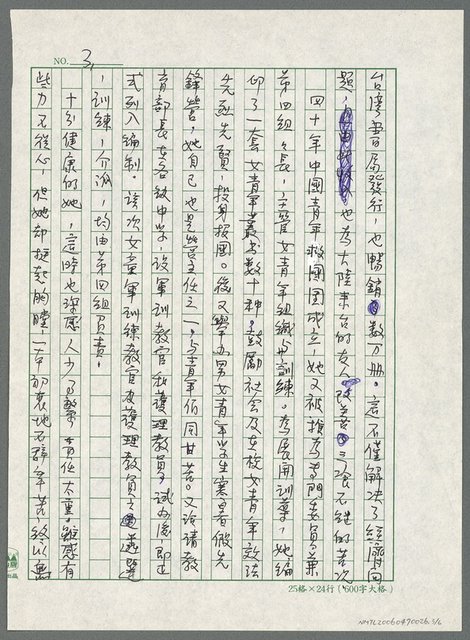 NO. 3
台灣書局發行,也暢銷數万册。這不僅解決了經濟問
題,也為大陸來台的友人改善三餐不继的苦况
四十年中國青年救國團成立,她又被推為專門委員兼
第四組組長,主管女青年組織與訓練。為展開訓導,她編
印了一套女青年叢书數十种,鼓勵社會及在校女青年效法
先烈先賢,投身报國。後又舉办男女青年学生寒暑假先
鋒營,她自己也是營主任之一,与青年伯同甘苦。又洽請教
育部長在各級中学,設軍训教官和護理教員,試办後,即正
式列入編制。該次女童軍训練教官及護理教員之遴選
,训練,分派,均由第四組負責。
十分健康的她,這時也深感人少事繁,責任太重,雖感有
些力不從心,但她却挺起胸膛一本初衷地不辞辛苦終以無
25格×24行(600字大格)
NMTL20060490026 3/6